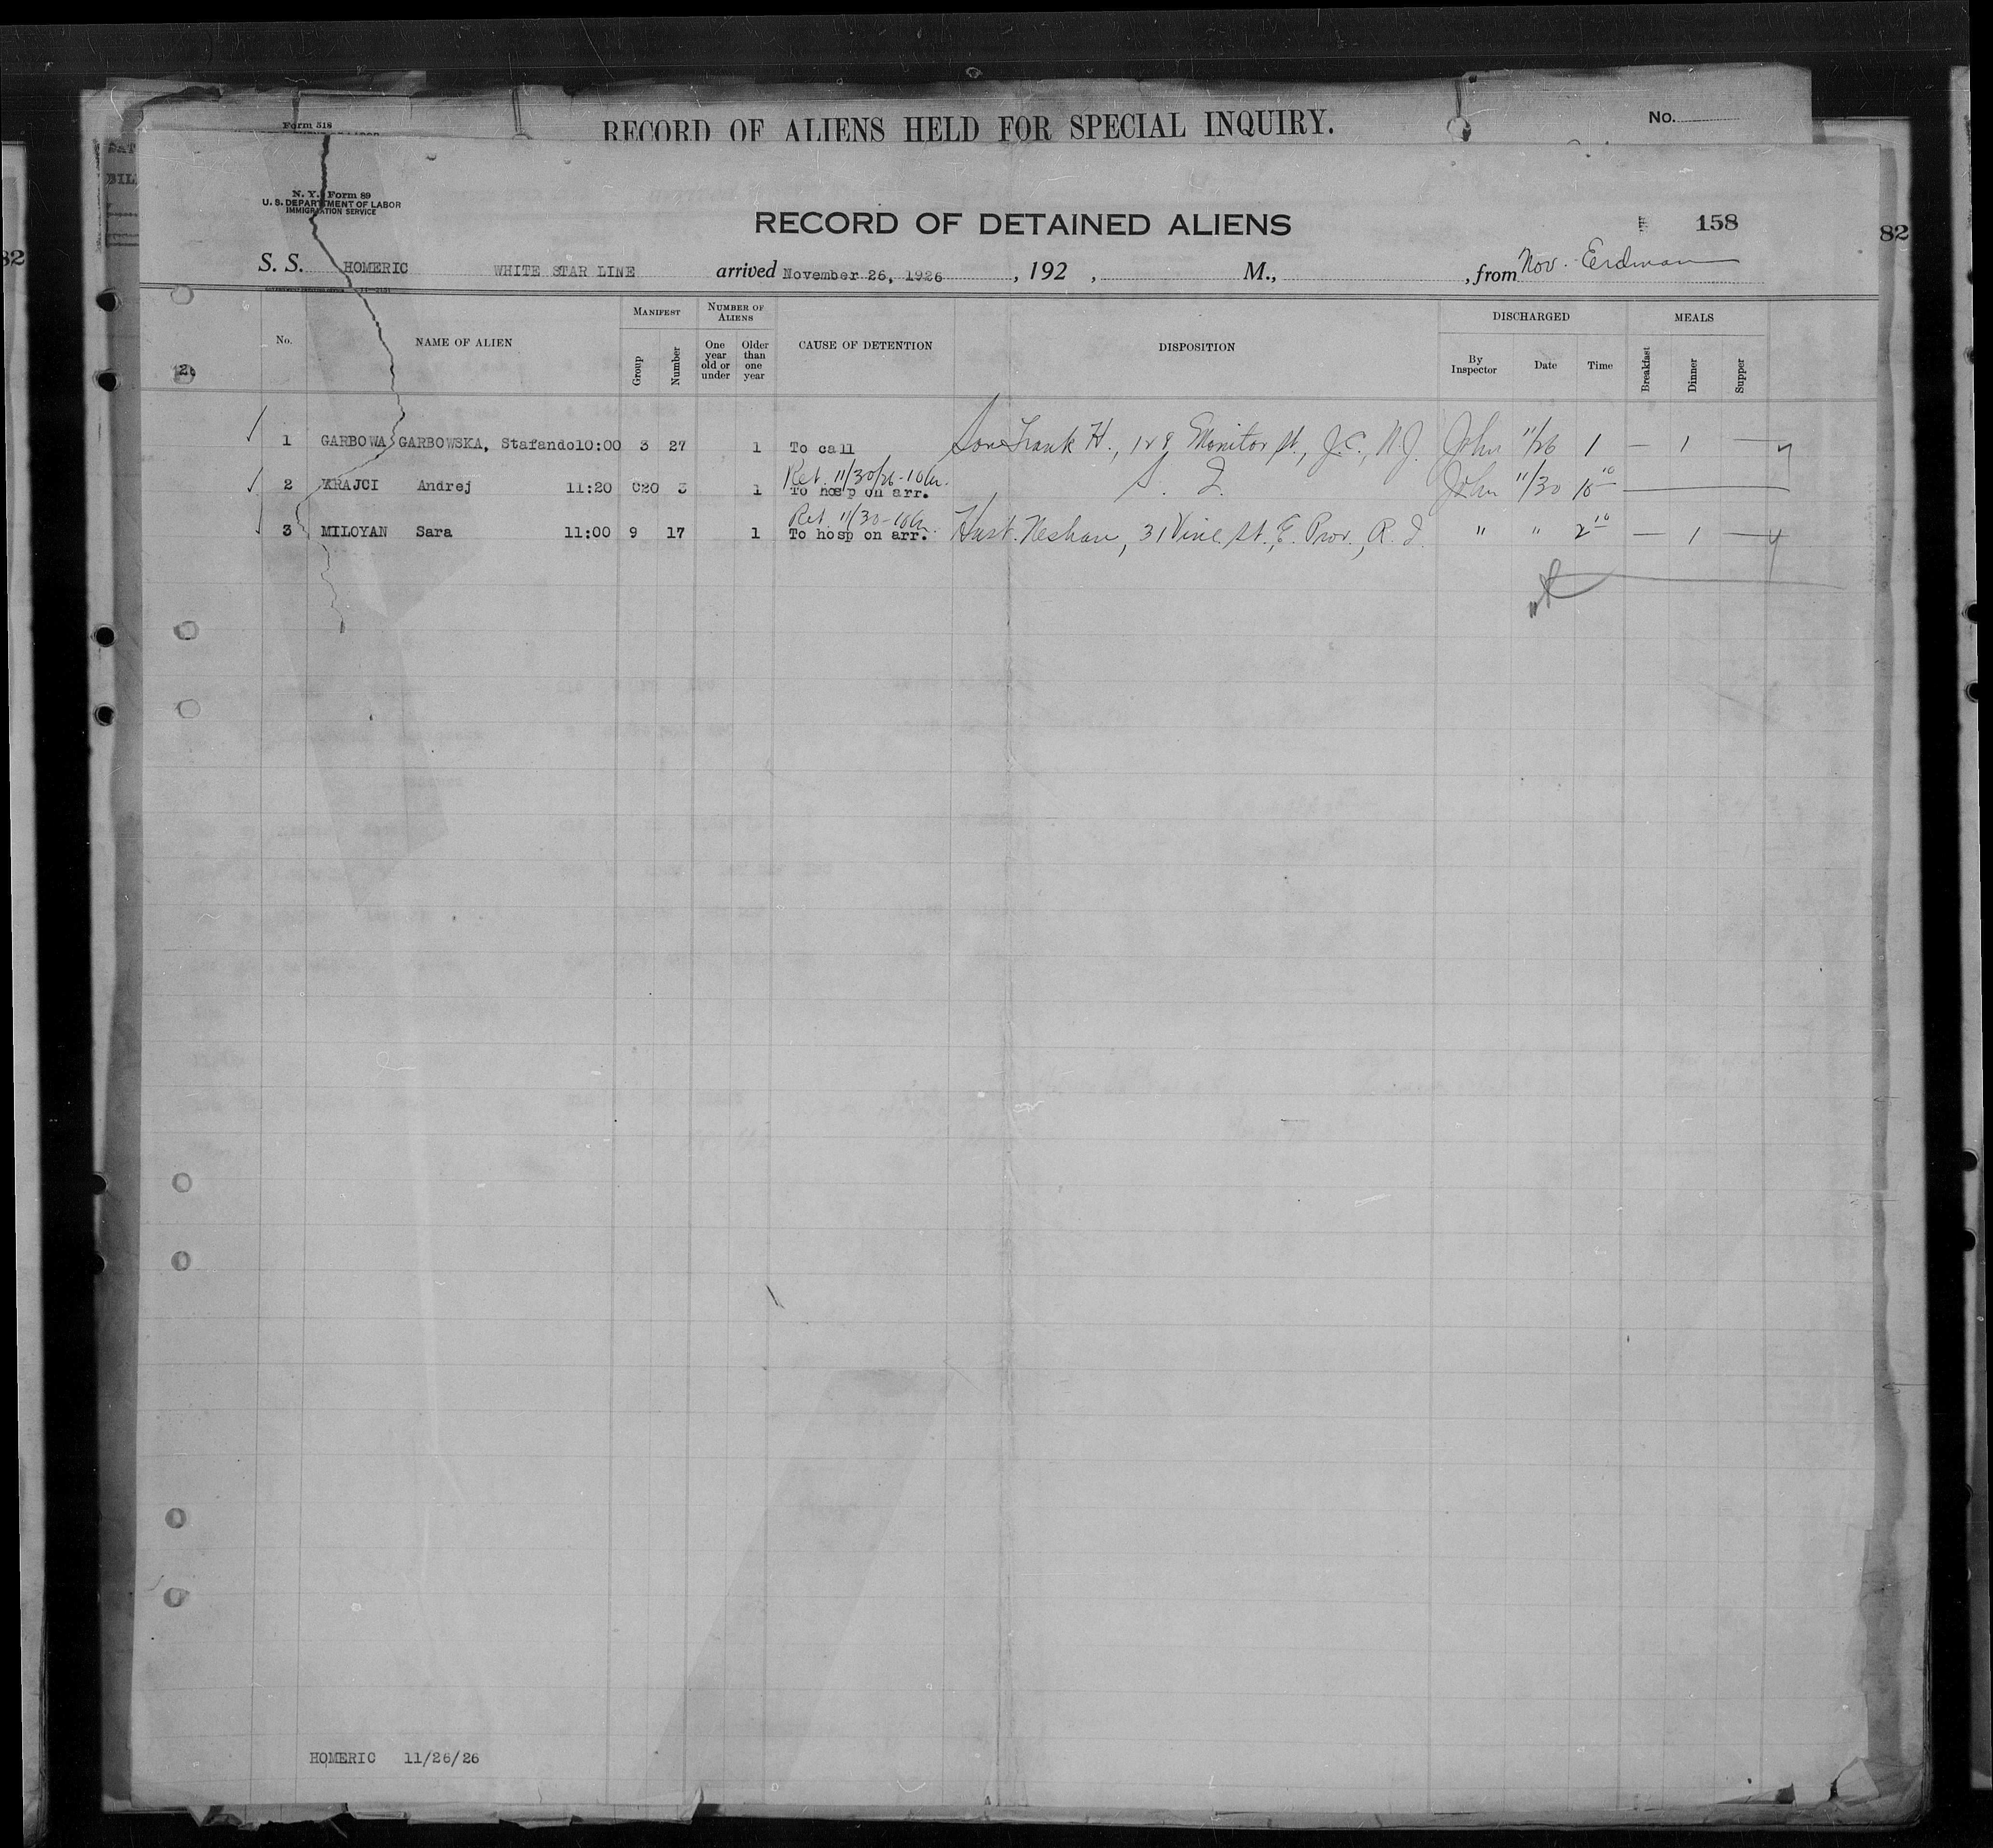 Form 518
RECORD OF ALIENS HELD FOR SPECIAL INQUIRY.
No.
N. Y. Form 89
U. S. DEPARTMENT OF LABOR
IMMIGRATION SERVICE
RECORD OF DETAINED ALIENS
158
82
82
S. S. HOMERIC WHITE STAR LINE arrived November 26, 1926, 192 , M., , from Nov. Erdman
No. NAME OF ALIEN MANIFEST Group Number NUMBER OF ALIENS One year old or under Older than one year CAUSE OF DETENTION DISPOSITION DISCHARGED By Inspector Date Time MEALS Breakfast Dinner Supper
1 GARBOWA GARBOWSKA, Stafando 10:00 3 27 1 To call Son Frank H., 128 Monitor St., J.C., N.J. John 11/26 1 — 1 —
Ret. 11/30/26 - 10
2 KRAJCI Andrej 11:20 C20 3 1 To hosp on arr. S. I. John 11/30 10 10
Ret. 11/30 - 10
3 MILOYAN Sara 11:00 9 17 1 To hosp on arr. Husb. Neshan, 31 Vine St., E. Prov., R. I. " " 2 10 — 1 —
HOMERIC 11/26/26